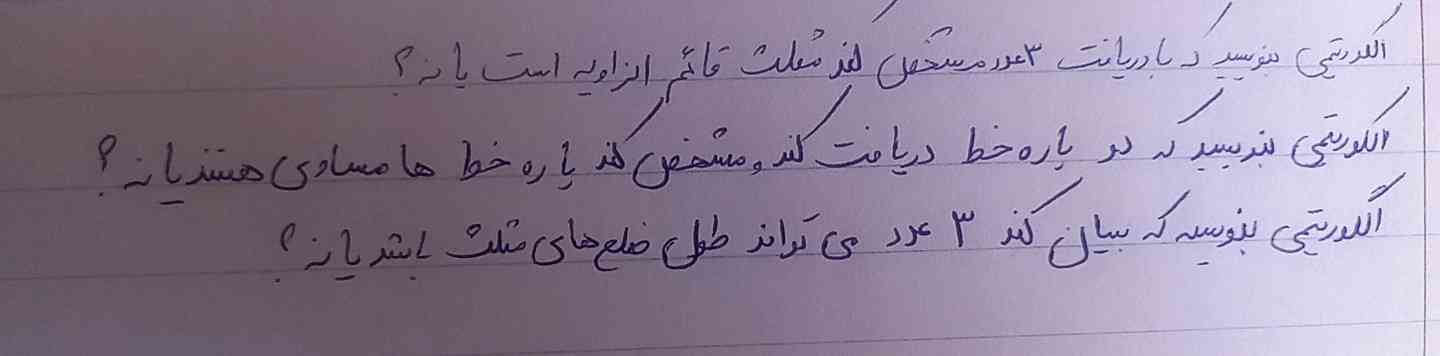 الگوریتمی بنویسید که با دریافت ۳ عدد مشخص کند مثلث قائم الزاویه است یا نه؟
الگوریتمی بنویسید که دو پاره خط دریافت کند و مشخص کند پاره خط ها مساوی هستند یا نه؟
الگوریتمی بنویسید که بیان کند ۳ عدد می تواند طول ضلع های مثلث باشد یا نه؟